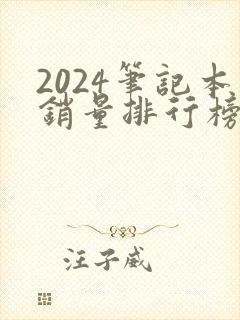 2024筆記本
銷量排行榜
汪子威